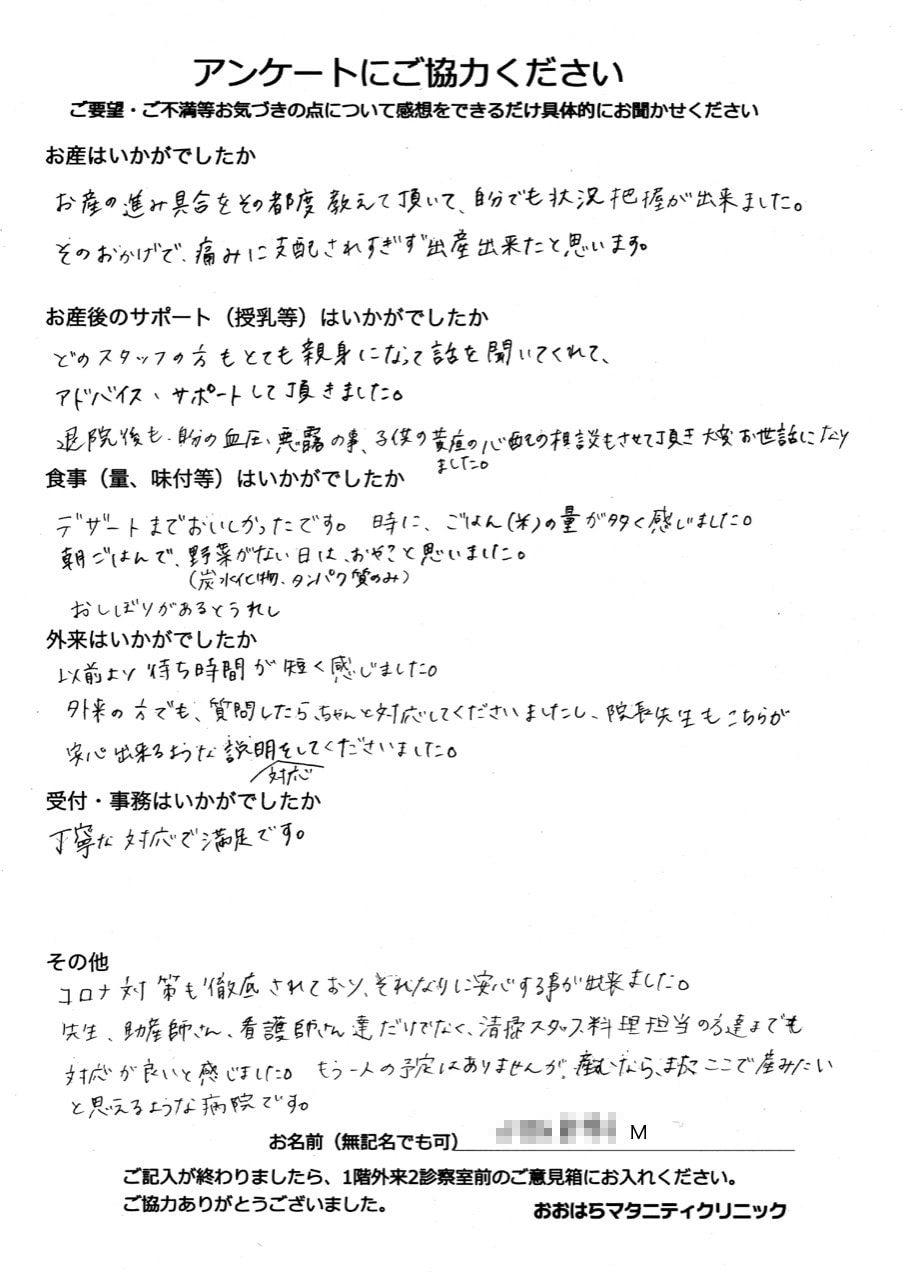 アンケートにご協力ください
ご要望・ご不満等お気づきの点について感想をできるだけ具体的にお聞かせください
お産はいかがでしたか
お産の進み具合をその都度教えて頂いて、自分でも状況把握が出来ました。
そのおかげで、痛みに支配されすぎず出産出来たと思います。
お産後のサポート（授乳等）はいかがでしたか
どのスタッフの方もとても親身になって話を聞いてくれて、
アドバイス、サポートして頂きました。
退院後も、自分の血圧、悪露の事、子供の黄疸の心配の相談もさせて頂き大変お世話になり
ました。
食事（量、味付等）はいかがでしたか
デザートまでおいしかったです。 時に、ごはん(米)の量が多く感じました。
朝ごはんで、野菜がない日は、おや？と思いました。
(炭水化物、タンパク質のみ)
おしぼりがあるとうれし
外来はいかがでしたか
以前より待ち時間が短く感じました。
外来の方でも、質問したら、ちゃんと対応してくださいましたし、院長先生もこちらが
安心出来るような説明をしてくださいました。
対応
受付・事務はいかがでしたか
丁寧な対応で満足です。
その他
コロナ対策も徹底されており、それなりに安心する事が出来ました。
先生、助産師さん、看護師さん達だけでなく、清掃スタッフ、料理担当の方達までも
対応が良いと感じました。 もう一人の予定はありませんが、産むなら、またここで産みたい
と思えるような病院です。
お名前（無記名でも可） M
ご記入が終わりましたら、1階外来2診察室前のご意見箱にお入れください。
ご協力ありがとうございました。
おおはらマタニティクリニック